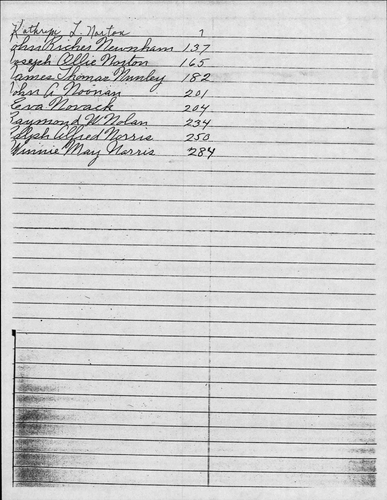 Kathryn L. Norton 7
John Riches Newnham 137
Joseph Allie Norton 165
James Thomas Nunley 182
John A Noonan 201
Eva Novack 204
Raymond W Nolan 234
Ralph Alfred Norris 250
Winnie May Norris 284